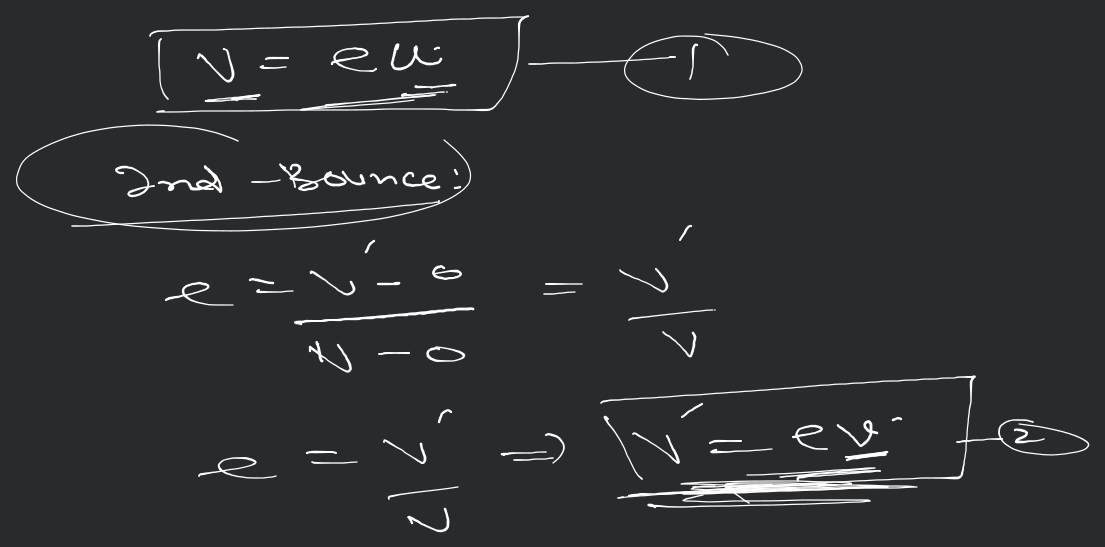 v = eu — 1
2nd - Bounce:
e = v' - 0 / v - 0 = v' / v
e = v' / v ⇒ v' = ev — 2